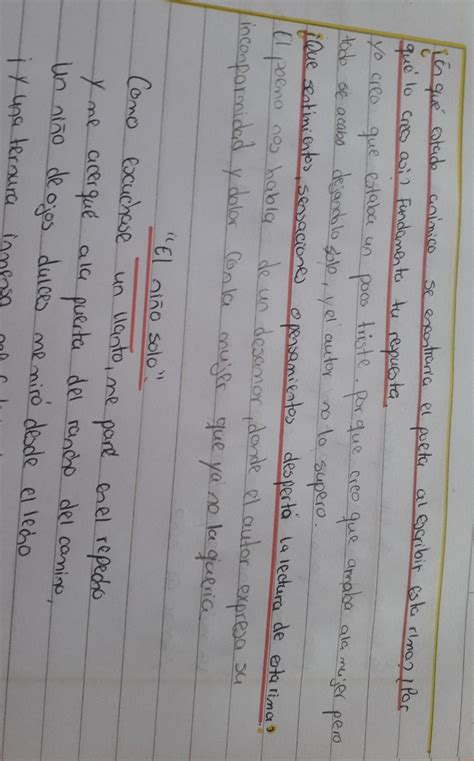 ¿En qué estado anímico se encontraría el poeta al escribir esta rima? ¿Por
qué lo crees así? Fundamenta tu respuesta
yo creo que estaba un poco triste, Por que creo que amaba ala mujer pero
todo se acabo dejandolo solo, y el autor no lo supero.
¿Qué sentimientos, sensaciones o pensamientos despertó la lectura de esta rima?
El poema nos habla de un desamor, donde el autor expresa su
inconformidad y dolor con la mujer que ya no la queria.
"El niño solo"
Como escuchase un llanto, me paré en el repecho
y me acerqué ala puerta del rancho del camino,
un niño de ojos dulces me miró desde el lecho
¡ y una ternura inmensa